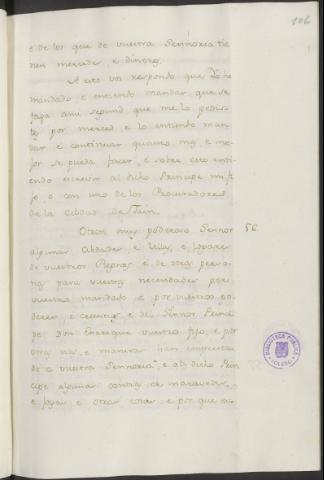 106
e de los que de vuestra Sennoria tie
nen mercedes, e dineros.
A esto vos respondo que Yo he
mandado e entiendo mandar que se
faga ansi segund que me lo pedis
tes por merced, e lo entiendo man
dar e continuar quanto mas e me
jor se pueda facer, e sobre esto enti
endo escrevir al dicho Principe mi fi
jo, o con uno de los Procuradores
de la Cibdad de Jaen.
Otrosi muy poderoso Sennor 56
algunas Cibdades, e Villas, e Logares
de vuestros Regnos, e de otras perso
nas para vuestras necesidades por
vuestro mandado e por vuestros po
deres, e creencias, e del Sennor Princi
pe Don Enrrique vuestro fijo, e por
otras vias, e maneras han emprestado
a vuestra Sennoria, e al dicho Prin
cipe algunas contias de maravedis,
e joyas, e otras cosas, e por que
BIBLIOTECA PUBLICA
TOLEDO